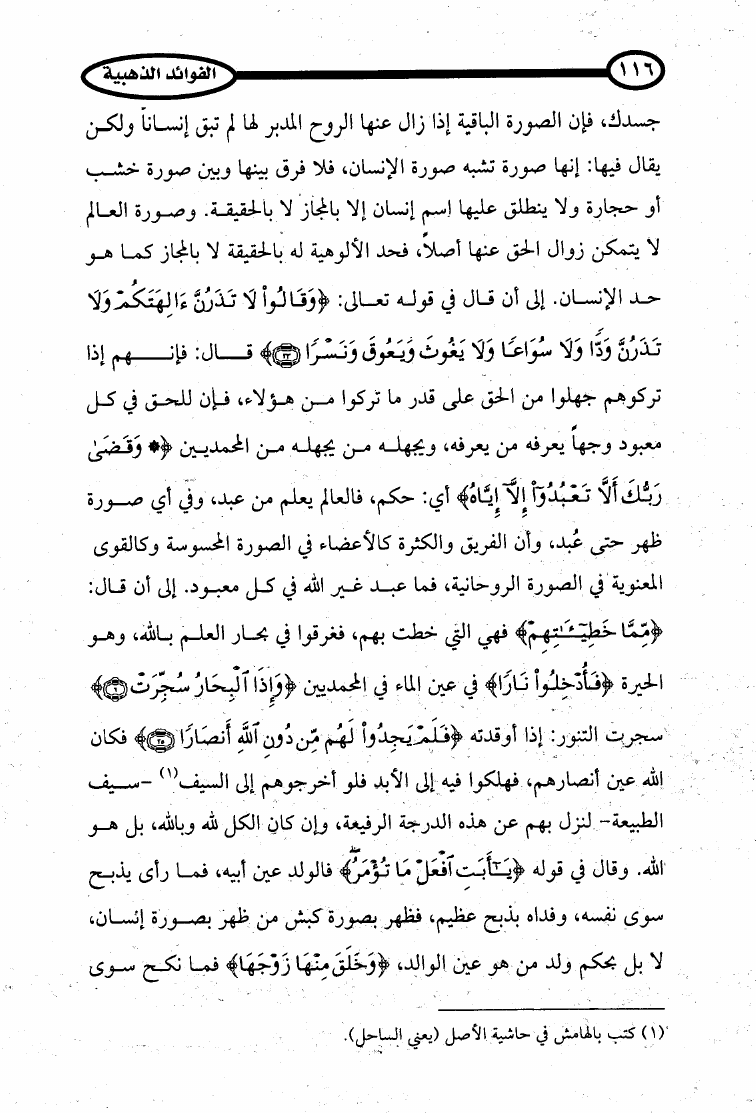 ١١٦
الفوائد الذهبية
جسدك، فإن الصورة الباقية إذا زال عنها الروح المدبر لها لم تبق إنساناً ولكن
يقال فيها: إنها صورة تشبه صورة الإنسان، فلا فرق بينها وبين صورة خشب
أو حجارة ولا ينطلق عليها اسم إنسان إلا بالمجاز لا بالحقيقة. وصورة العالم
لا يتمكن زوال الحق عنها أصلاً، فحد الألوهية له بالحقيقة لا بالمجاز كما هو
حد الإنسان. إلى أن قال في قوله تعالى: ﴿وَقَالُواْ لَا تَذَرُنَّ ءَالِهَتَكُمْ وَلَا
تَذَرُنَّ وَدًّا وَلَا سُوَاعًا وَلَا يَغُوثَ وَيَعُوقَ وَنَسْرًا ٢٣﴾ قال: فإنهم إذا
تركوهم جهلوا من الحق على قدر ما تركوا من هؤلاء، فإن للحق في كل
معبود وجهاً يعرفه من يعرفه، ويجهله من يجهله من المحمديين ﴿۞ وَقَضَىٰ
رَبُّكَ أَلَّا تَعْبُدُوٓاْ إِلَّآ إِيَّاهُ﴾ أي: حكم، فالعالم يعلم من عبد، وفي أي صورة
ظهر حتى عُبد، وأن الفريق والكثرة كالأعضاء في الصورة المحسوسة وكالقوى
المعنوية في الصورة الروحانية، فما عبد غير الله في كل معبود. إلى أن قال:
﴿مِّمَّا خَطِيٓـَٰٔتِهِمْ﴾ فهي التي خطت بهم، فغرقوا في بحار العلم بالله، وهو
الحيرة ﴿فَأُدْخِلُواْ نَارًا﴾ في عين الماء في المحمديين ﴿وَإِذَا ٱلْبِحَارُ سُجِّرَتْ ٦﴾
سجرت التنور: إذا أوقدته ﴿فَلَمْ يَجِدُواْ لَهُم مِّن دُونِ ٱللَّهِ أَنصَارًا ٢٥﴾ فكان
الله عين أنصارهم، فهلكوا فيه إلى الأبد فلو أخرجوهم إلى السيف(١) -سيف
الطبيعة- لنزل بهم عن هذه الدرجة الرفيعة، وإن كان الكل لله وبالله، بل هو
الله. وقال في قوله ﴿يَـٰٓأَبَتِ ٱفْعَلْ مَا تُؤْمَرُ﴾ فالولد عين أبيه، فما رأى يذبح
سوى نفسه، وفداه بذبح عظيم، فظهر بصورة كبش من ظهر بصورة إنسان،
لا بل بحكم ولد من هو عين الوالد، ﴿وَخَلَقَ مِنْهَا زَوْجَهَا﴾ فما نكح سوى
(١) كتب بالهامش في حاشية الأصل (يعني الساحل).